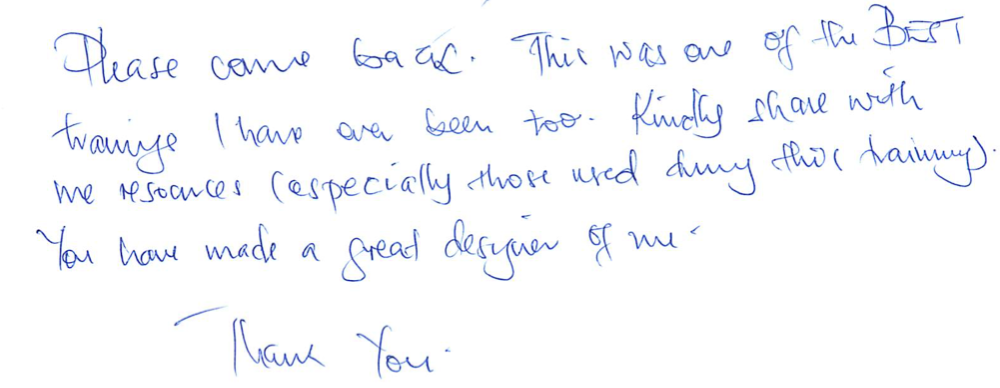 Please come back. This was one of the BEST
trainings I have ever been too. Kindly share with
me resources (especially those used during this training).
You have made a great designer of me.
Thank You.